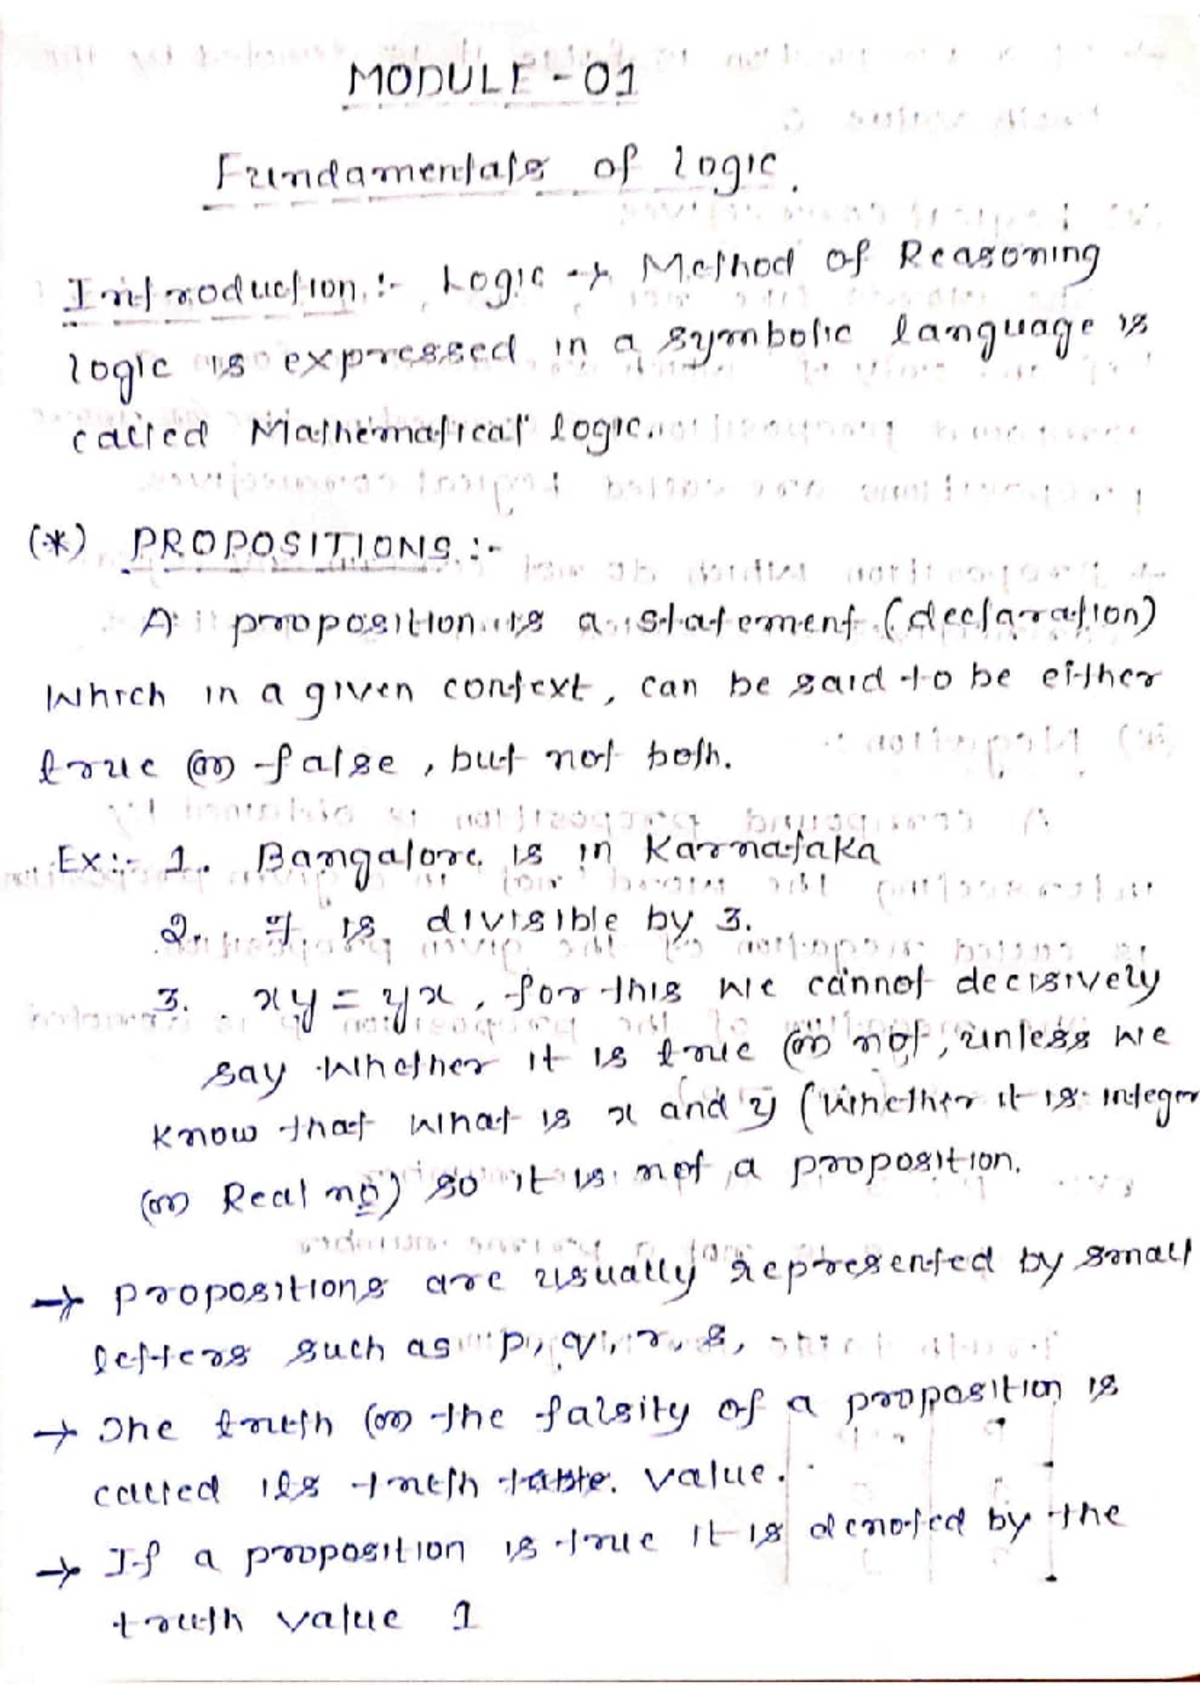 MODULE - 01
Fundamentals of logic.
Introduction :- Logic → Method of Reasoning
logic is expressed in a symbolic language is
called Mathematical logic.
(*) PROPOSITIONS :-
A proposition is a statement (declaration)
Which in a given context, can be said to be either
true (or) false, but not both.
Ex:- 1. Bangalore is in Karnataka
2. is divisible by 3.
3. xy = yx, for this we cannot decisively
say whether it is true (or) not, unless we
know that what is x and y (whether it is integer
(or) Real no) so it is not a proposition.
→ propositions are usually represented by small
letters such as p, q, r, s,
→ The truth (or) the falsity of a proposition is
called its truth table. value.
→ If a proposition is true it is denoted by the
truth value 1